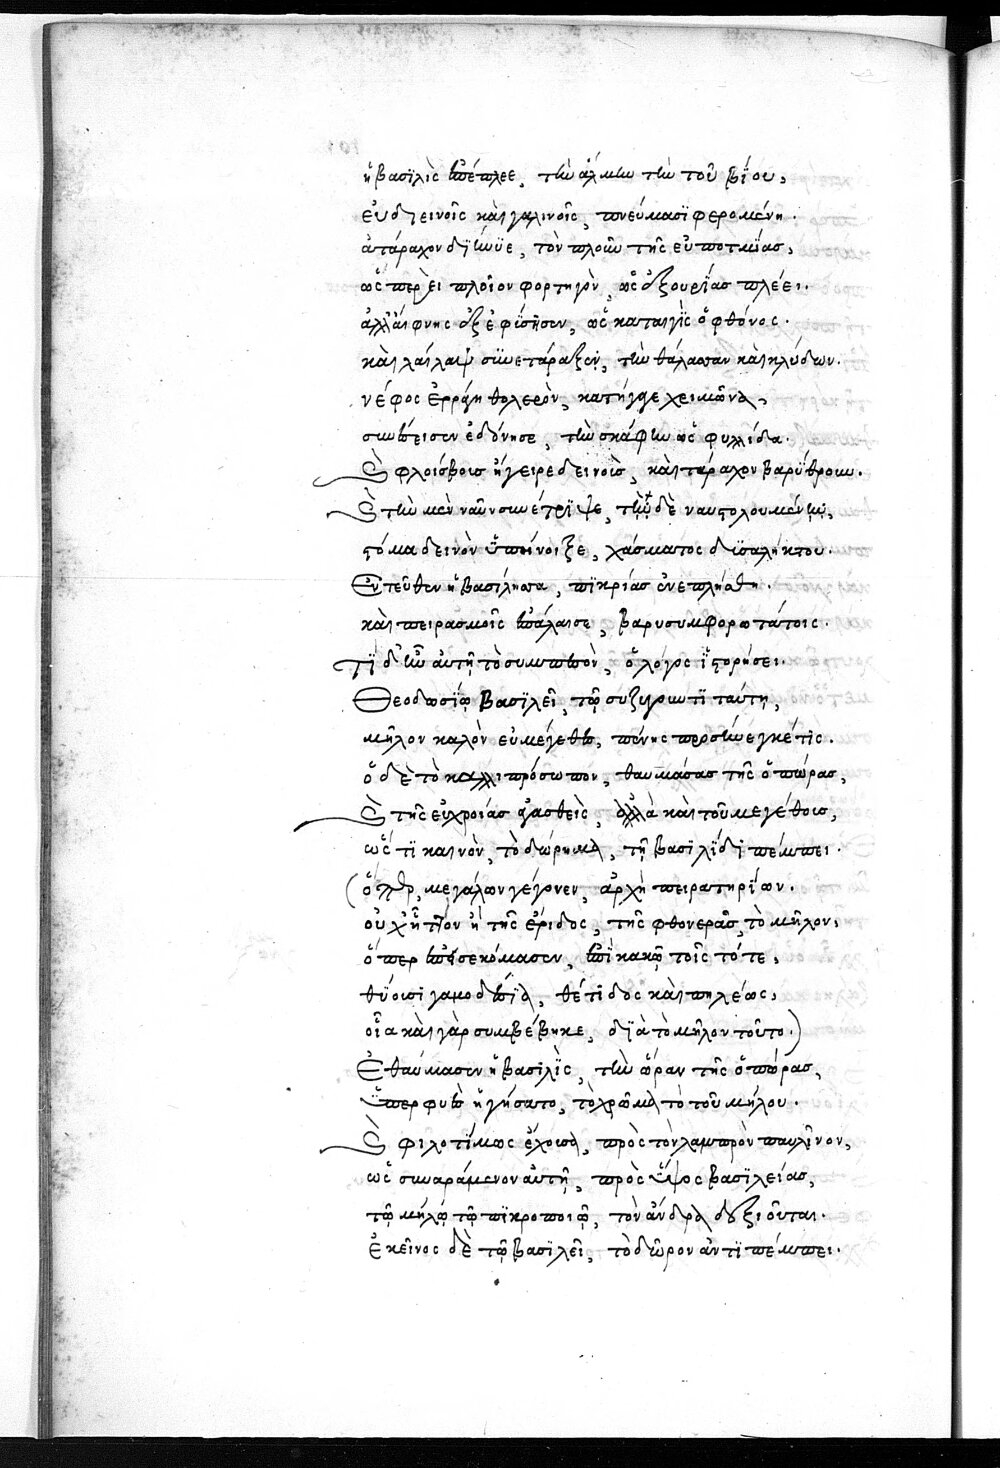 ἡ βασιλὶς ἐπέπλεε, τὴν ἅλμην τὴν τοῦ βίου,
εὐδιεινοῖς καὶ γαληνοῖς, πνεύμασι φερομένη.
ἀτάραχον διήνυε, τὸν πλοῦν τῆς εὐποτμίας,
ὡσπερεὶ πλοῖον φορτηγὸν, ὡς ἐξ οὐρίας πλέει.
ἀλλ' αἴφνης ἐξεφύσησεν, ὡς καταιγὶς ὁ φθόνος.
καὶ λαίλαψ συνετάραξεν, τὴν θάλασσαν καὶ κλύδων.
νέφος ἐρράγη θολερὸν, κατήγαγε χειμῶνα,
συνέσεισεν ἐδόνησε, τὴν σκάφην ὡς φυλλίδα.
καὶ φλοίσβους ἤγειρε δεινοὺς, καὶ τάραχον βαρύβρουν.
καὶ τὴν μὲν ναῦν συνέτριψε, τῷ δὲ ναυστολουμένῳ,
στόμα δεινὸν ὑπήνοιξε, χάσματος δυσαλύκτου.
Ἐντεῦθεν ἡ βασίλισσα, πικρίας ἐνεπλήσθη.
καὶ πειρασμοῖς ἐπάλαισε, βαρυσυμφορωτάτοις.
τί δ' ἦν αὐτῇ τὸ συμπεσὸν, ὁ λόγος ἱστορήσει.
Θεοδοσίῳ βασιλεῖ, τῷ συζυγοῦντι ταύτῃ,
μῆλον καλὸν εὐμέγεθες, πένης προσήνεγκέ τις.
ὁ δὲ τὸ καλλιπρόσωπον, θαυμάσας τῆς ὀπώρας,
καὶ τῆς εὐχροίας ἀγασθεὶς, ἀλλὰ καὶ τοῦ μεγέθους,
ὥς τι καινὸν, τὸ δώρημα, τῇ βασιλίδι πέμπει.
(ὅπερ, μεγάλων γέγονεν, ἀρχὴ πειρατηρίων.
οὐχ ἧττον ἢ τῆς ἔριδος, τῆς φθονερᾶς τὸ μῆλον,
ὅπερ ἐπεισεκόμασεν, ἐπὶ κακῷ τοῖς τότε,
θύουσι γαμοδαίσια, θέτιδος καὶ πηλέως,
οἷα καὶ γὰρ συμβέβηκε, διὰ τὸ μῆλον τοῦτο.)
Ἐθαύμασεν ἡ βασιλὶς, τὴν ὥραν τῆς ὀπώρας,
ὑπερφυὲς ἡγήσατο, τὸ χρῶμα τὸ τοῦ μήλου.
καὶ φιλοτίμως ἔχουσα, πρὸς τὸν λαμπρὸν παυλῖνον,
ὡς συναράμενον αὐτῇ, πρὸς ὕψος βασιλείας,
τῷ μήλῳ τῷ πικροποιῷ, τὸν ἄνδρα δεξιοῦται.
Ἐκεῖνος δὲ τῷ βασιλεῖ, τὸ δῶρον ἀντιπέμπει.